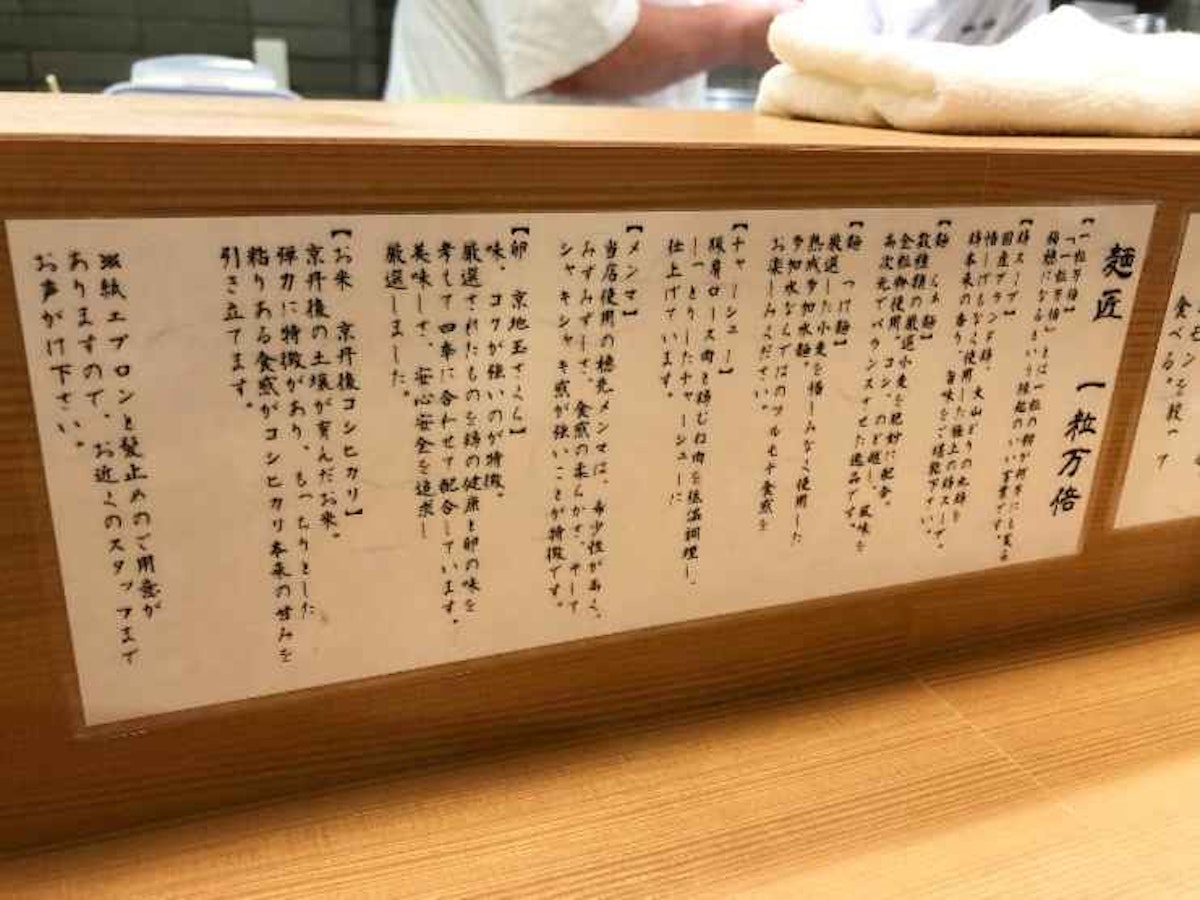 麺匠 一粒万倍
【「一粒万倍」】
「一粒万倍」とは一粒の籾が何倍にも実る
稲穂になるという縁起のいい言葉です。
【鶏スープ】
国産ブランド鶏、大山どりの丸鶏を
惜しげもなく使用した極上の鶏スープ。
鶏本来の香り、旨味をご堪能下さい。
【麺 らぁ麺】
数種類の厳選小麦を絶妙に配合。
全粒粉使用。コシ、のど越し、風味を
高次元でバランスさせた逸品です。
【麺 つけ麺】
厳選した小麦を惜しみなく使用した
熟成多加水麺。
多加水ならではのツルモチ食感を
お楽しみください。
【チャーシュー】
豚肩ロース肉と鶏むね肉を低温調理し、
しっとりしたチャーシューに
仕上げています。
【メンマ】
当店使用の穂先メンマは、希少性が高く、
みずみずしさ、食感の柔らかさ、そして
シャキシャキ感が強いことが特徴です。
【卵 京地玉さくら】
味、コクが強いのが特徴。
厳選されたものを鶏の健康と卵の味を
考えて四季に合わせて配合しています。
美味しさ、安心安全を追求し
厳選しました。
【お米 京丹後コシヒカリ】
京丹後の土壌が育んだお米。
弾力に特徴があり、もっちりとした
粘りある食感がコシヒカリ本来の甘みを
引き立てます。
※紙エプロンと髪止めのご用意が
ありますので、お近くのスタッフまで
お声がけ下さい。